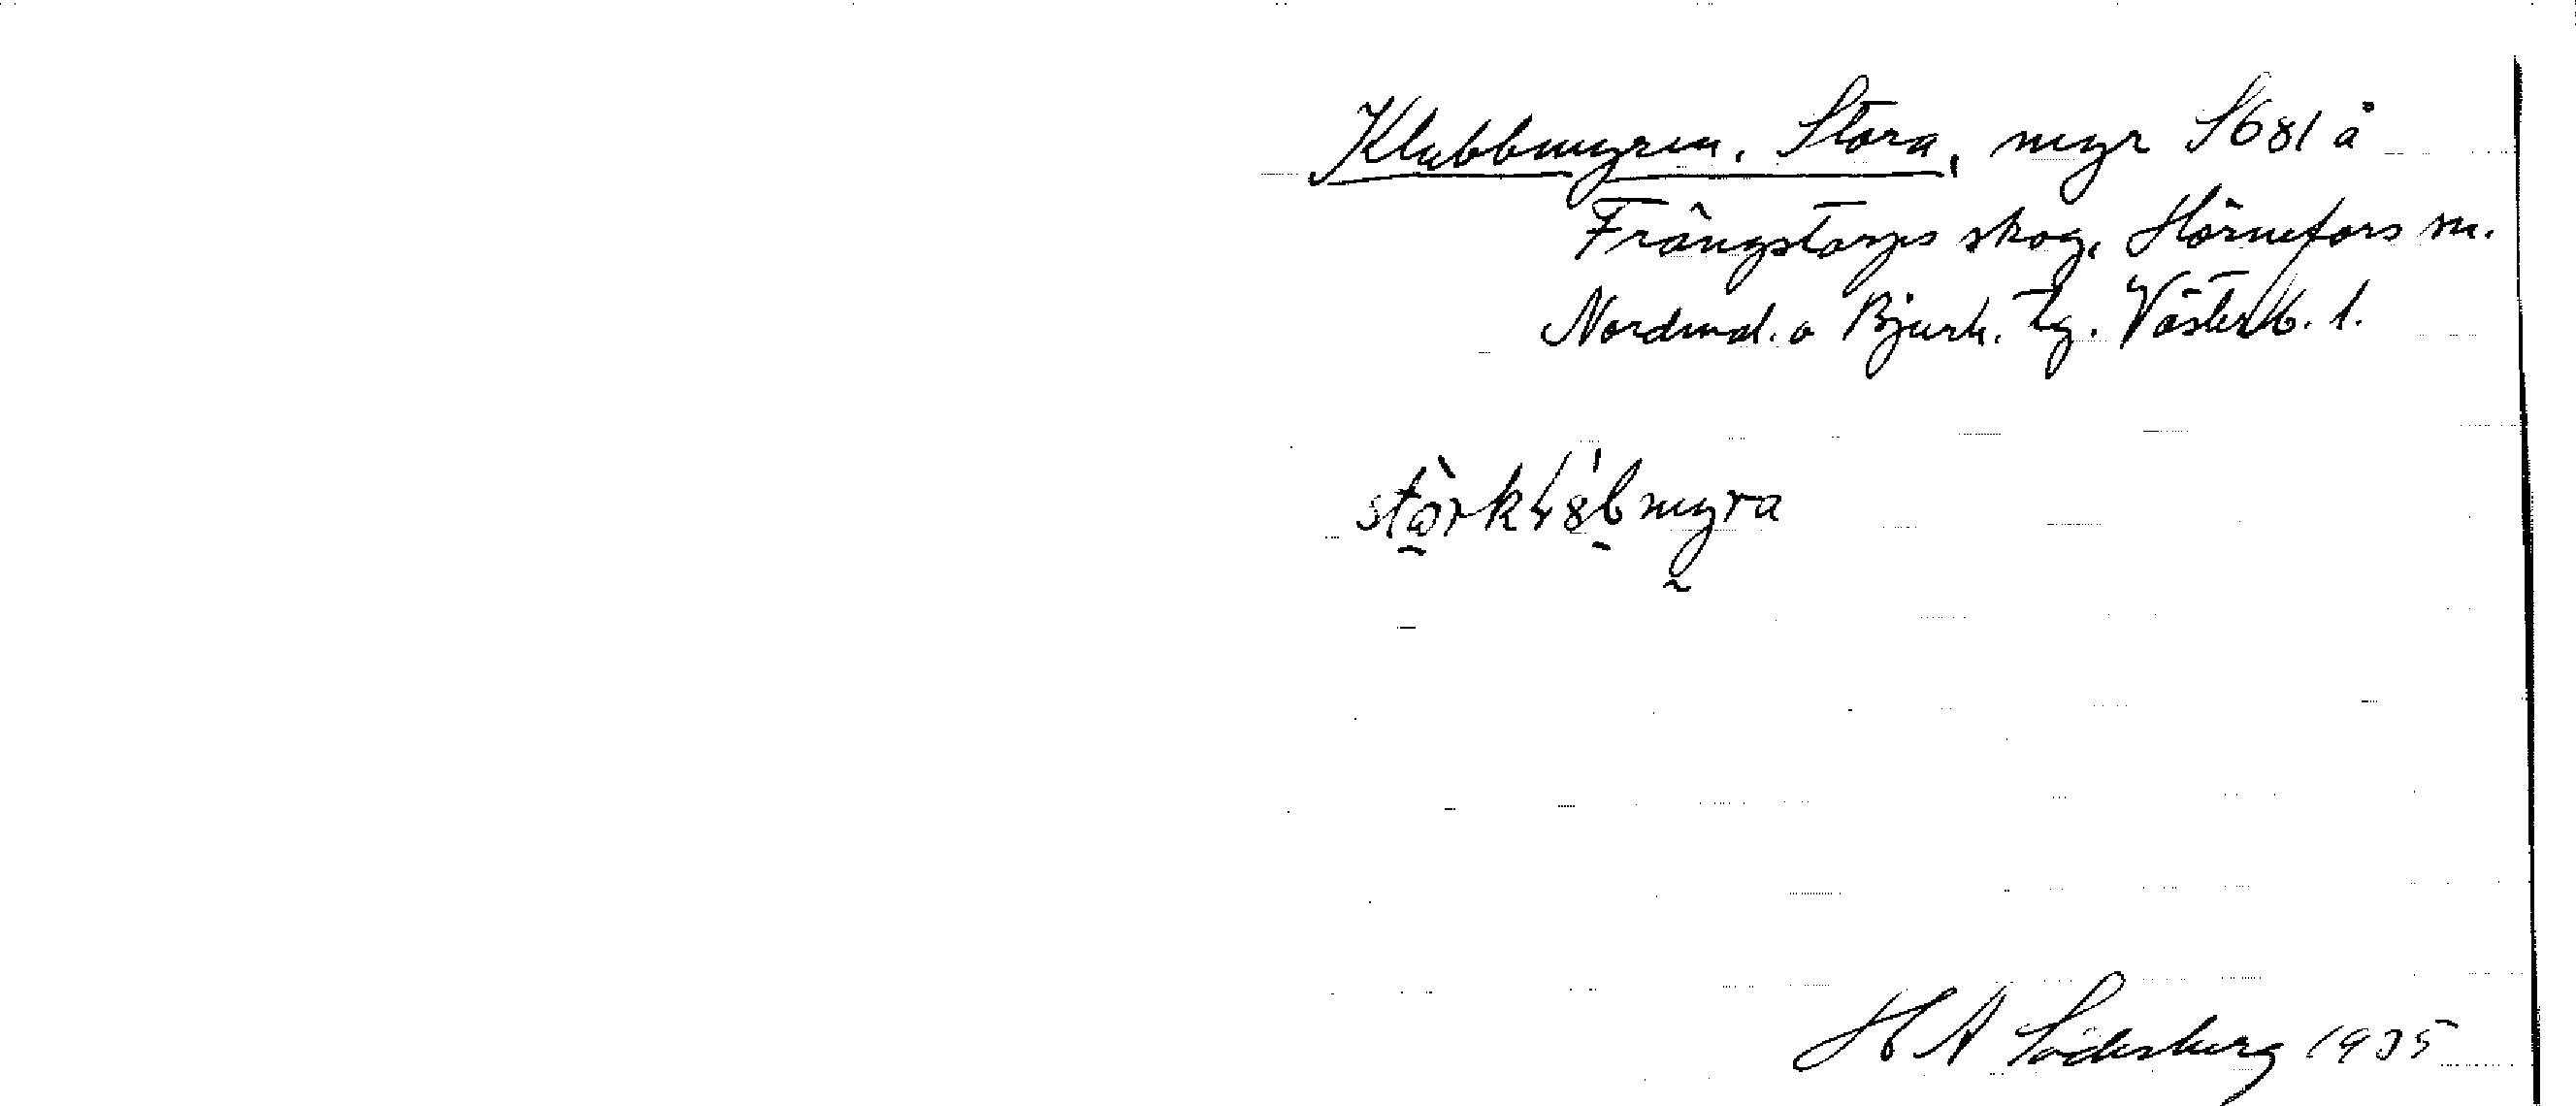 Klubbmyren, Stora, myr S681 å
Frängstorps skog, Hörnefors sn.
Nordmal. o Bjurh. tg. Västerb. l.
H A Söderberg 1935